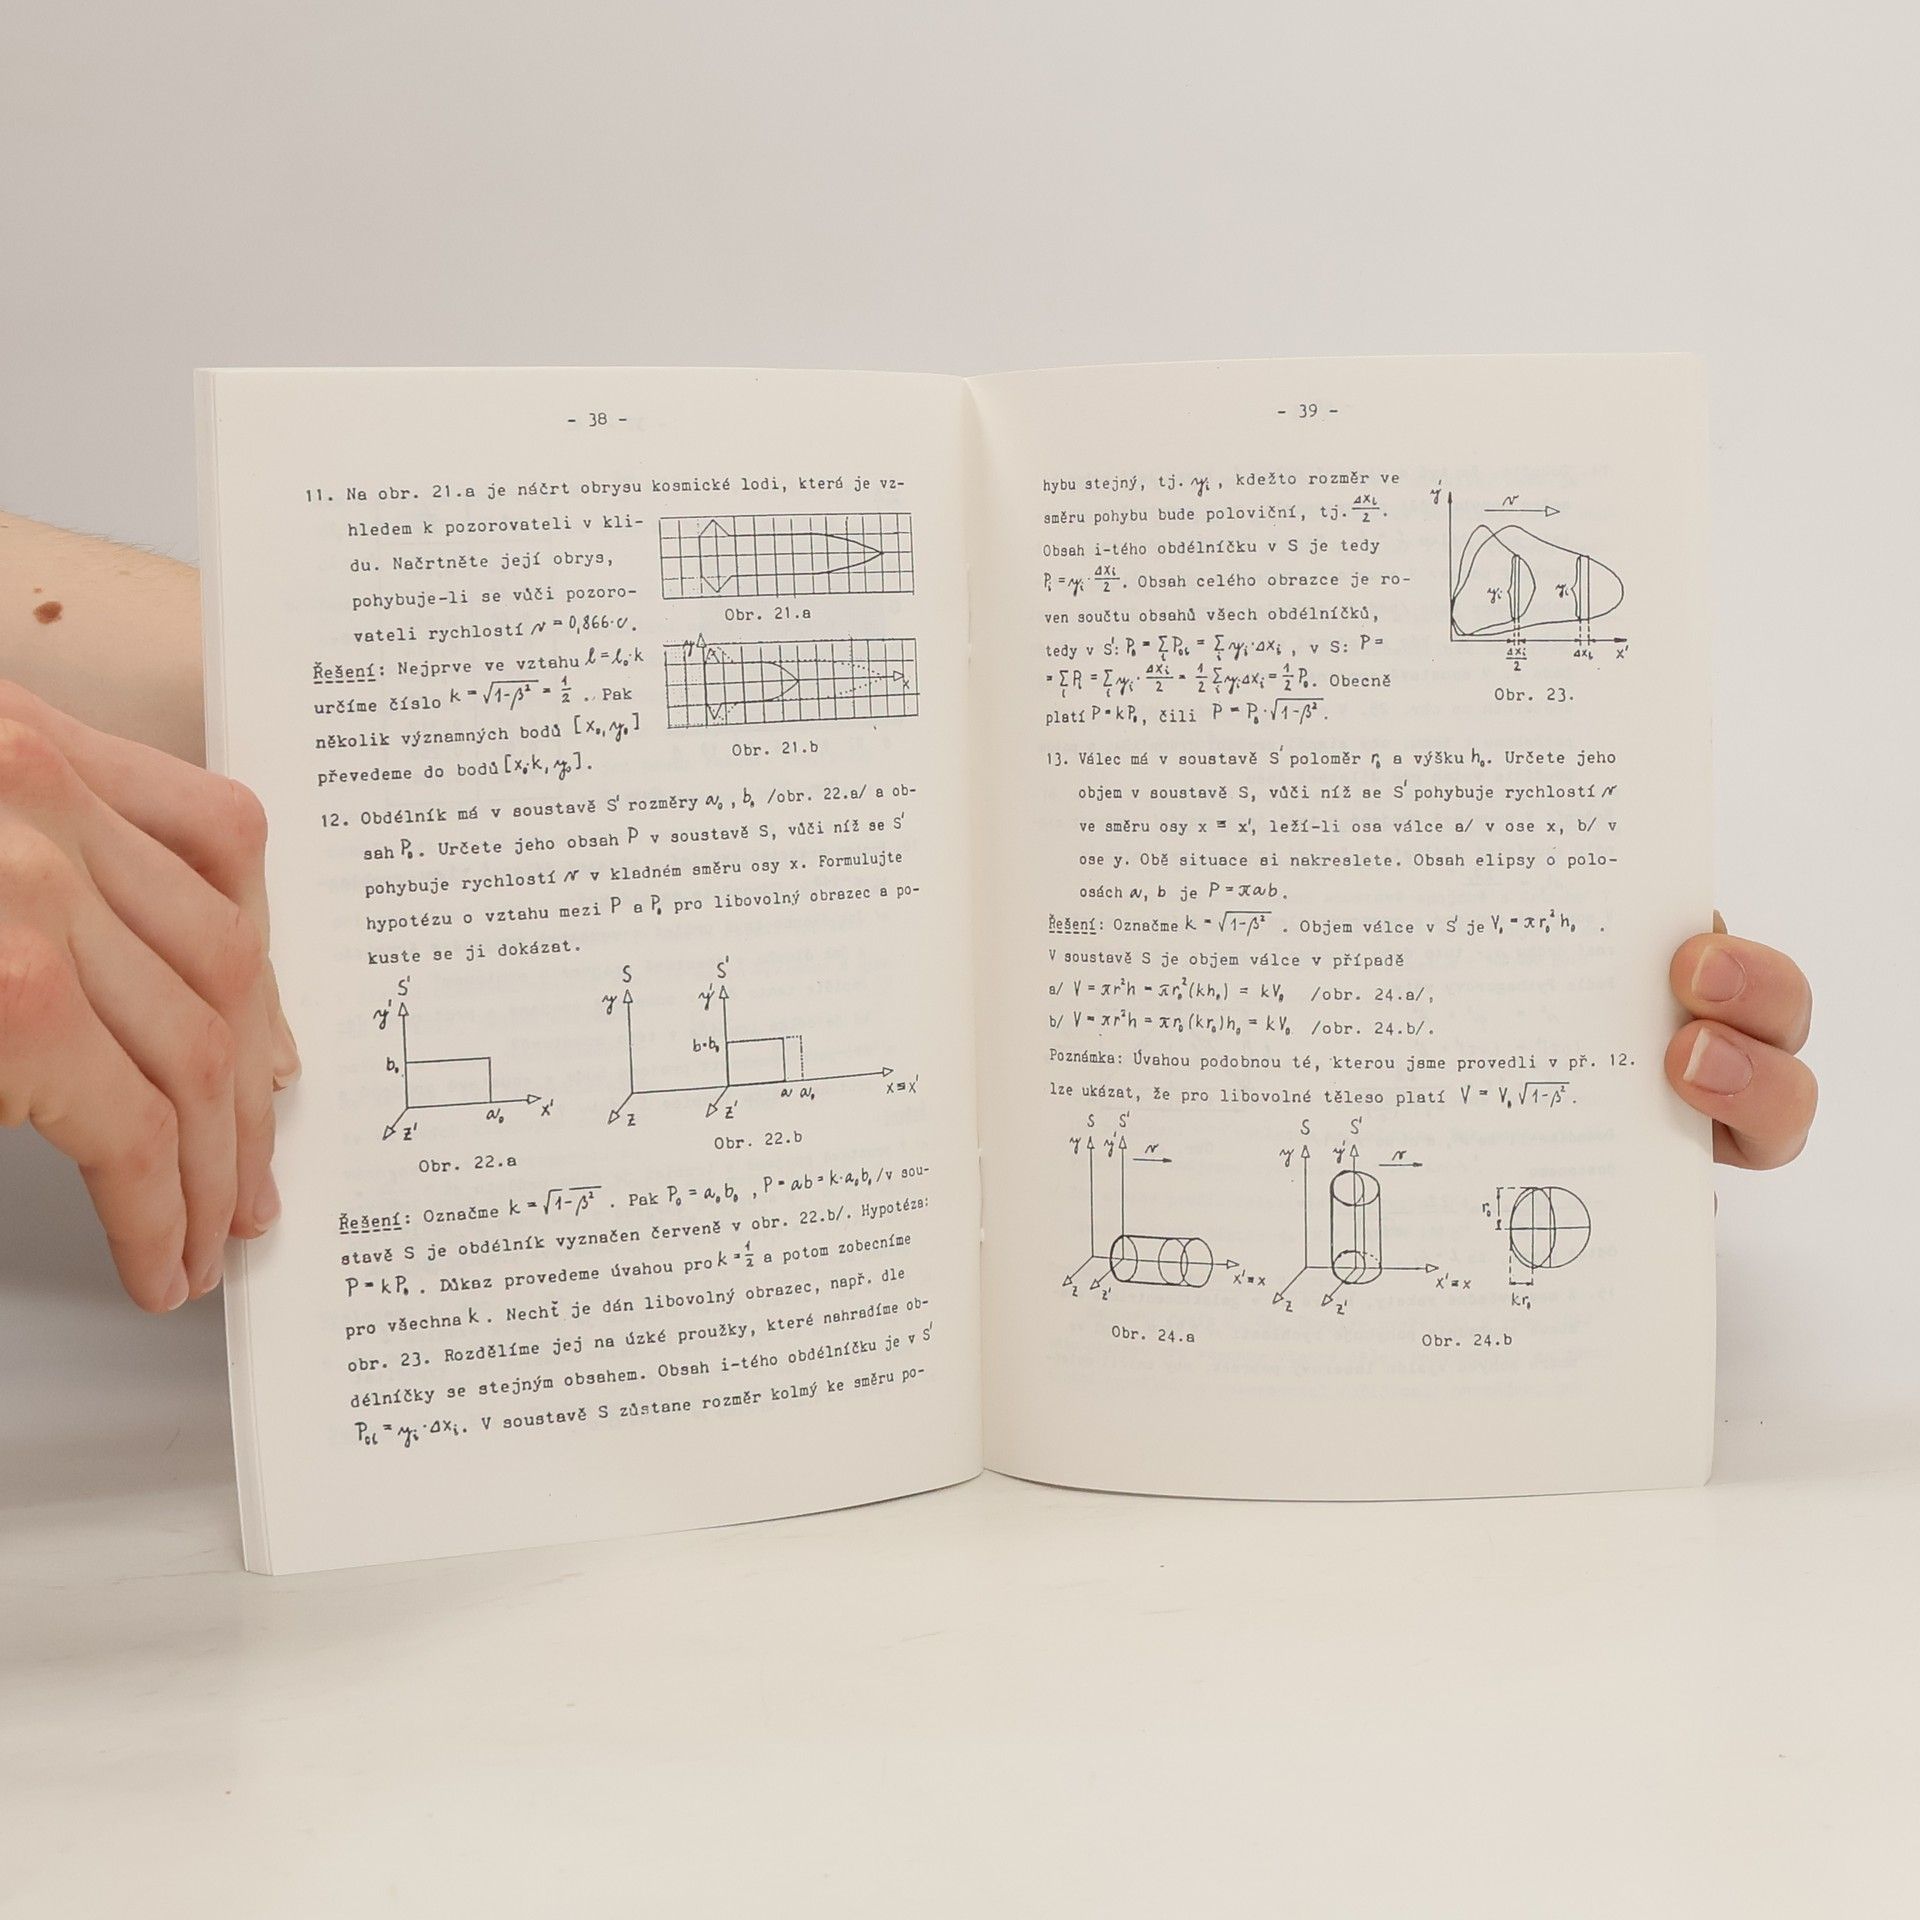 - 38 -
11. Na obr. 21.a je náčrt obrysu kosmické lodi, která je vz-
hledem k pozorovateli v kli-
du. Načrtněte její obrys,
pohybuje-li se vůči pozoro-
vateli rychlostí v = 0,866·c.
Obr. 21.a
y
x
Obr. 21.b
Řešení: Nejprve ve vztahu l = l₀·k
určíme číslo k = √(1-β²) = 1/2 . Pak
několik významných bodů [x₀, y₀]
převedeme do bodů [x₀·k, y₀].
12. Obdélník má v soustavě S' rozměry a₀ , b₀ /obr. 22.a/ a ob-
sah P₀. Určete jeho obsah P v soustavě S, vůči níž se S'
pohybuje rychlostí v v kladném směru osy x. Formulujte
hypotézu o vztahu mezi P a P₀ pro libovolný obrazec a po-
kuste se ji dokázat.
S' S S'
y' y y'
b₀ b=b₀
a₀ x' a a₀ x≡x'
z' z z'
Obr. 22.a Obr. 22.b
Řešení: Označme k = √(1-β²) . Pak P₀ = a₀b₀ , P = ab = k·a₀b₀ /v sou-
stavě S je obdélník vyznačen červeně v obr. 22.b/. Hypotéza:
P = kP₀ . Důkaz provedeme úvahou pro k = 1/2 a potom zobecníme
pro všechna k . Nechť je dán libovolný obrazec, např. dle
obr. 23. Rozdělíme jej na úzké proužky, které nahradíme ob-
délníčky se stejným obsahem. Obsah i-tého obdélníčku je v S'
P₀ᵢ = yᵢ·Δxᵢ. V soustavě S zůstane rozměr kolmý ke směru po-
- 39 -
hybu stejný, tj. yᵢ , kdežto rozměr ve
směru pohybu bude poloviční, tj. Δxᵢ/2 .
Obsah i-tého obdélníčku v S je tedy
Pᵢ = yᵢ·Δxᵢ/2 . Obsah celého obrazce je ro-
ven součtu obsahů všech obdélníčků,
tedy v S': P₀ = ∑ᵢ P₀ᵢ = ∑ᵢ yᵢ·Δxᵢ , v S: P =
= ∑ᵢ Pᵢ = ∑ᵢ yᵢ·Δxᵢ/2 = 1/2 ∑ᵢ yᵢΔxᵢ = 1/2 P₀. Obecně
platí P = kP₀, čili P = P₀·√(1-β²).
y' v
yᵢ yᵢ
Δxᵢ/2 Δxᵢ x'
Obr. 23.
13. Válec má v soustavě S' poloměr r₀ a výšku h₀. Určete jeho
objem v soustavě S, vůči níž se S' pohybuje rychlostí v
ve směru osy x ≡ x', leží-li osa válce a/ v ose x, b/ v
ose y. Obě situace si nakreslete. Obsah elipsy o polo-
osách a, b je P = πab.
Řešení: Označme k = √(1-β²) . Objem válce v S' je V₀ = πr₀²h₀ .
V soustavě S je objem válce v případě
a/ V = πr²h = πr₀²(kh₀) = kV₀ /obr. 24.a/,
b/ V = πr²h = πr₀(kr₀)h₀ = kV₀ /obr. 24.b/.
Poznámka: Úvahou podobnou té, kterou jsme provedli v př. 12.
lze ukázat, že pro libovolné těleso platí V = V₀√(1-β²).
S S' S S'
y y' v y y' v
r₀
x'≡x x'≡x
z z' z z' kr₀
Obr. 24.a Obr. 24.b